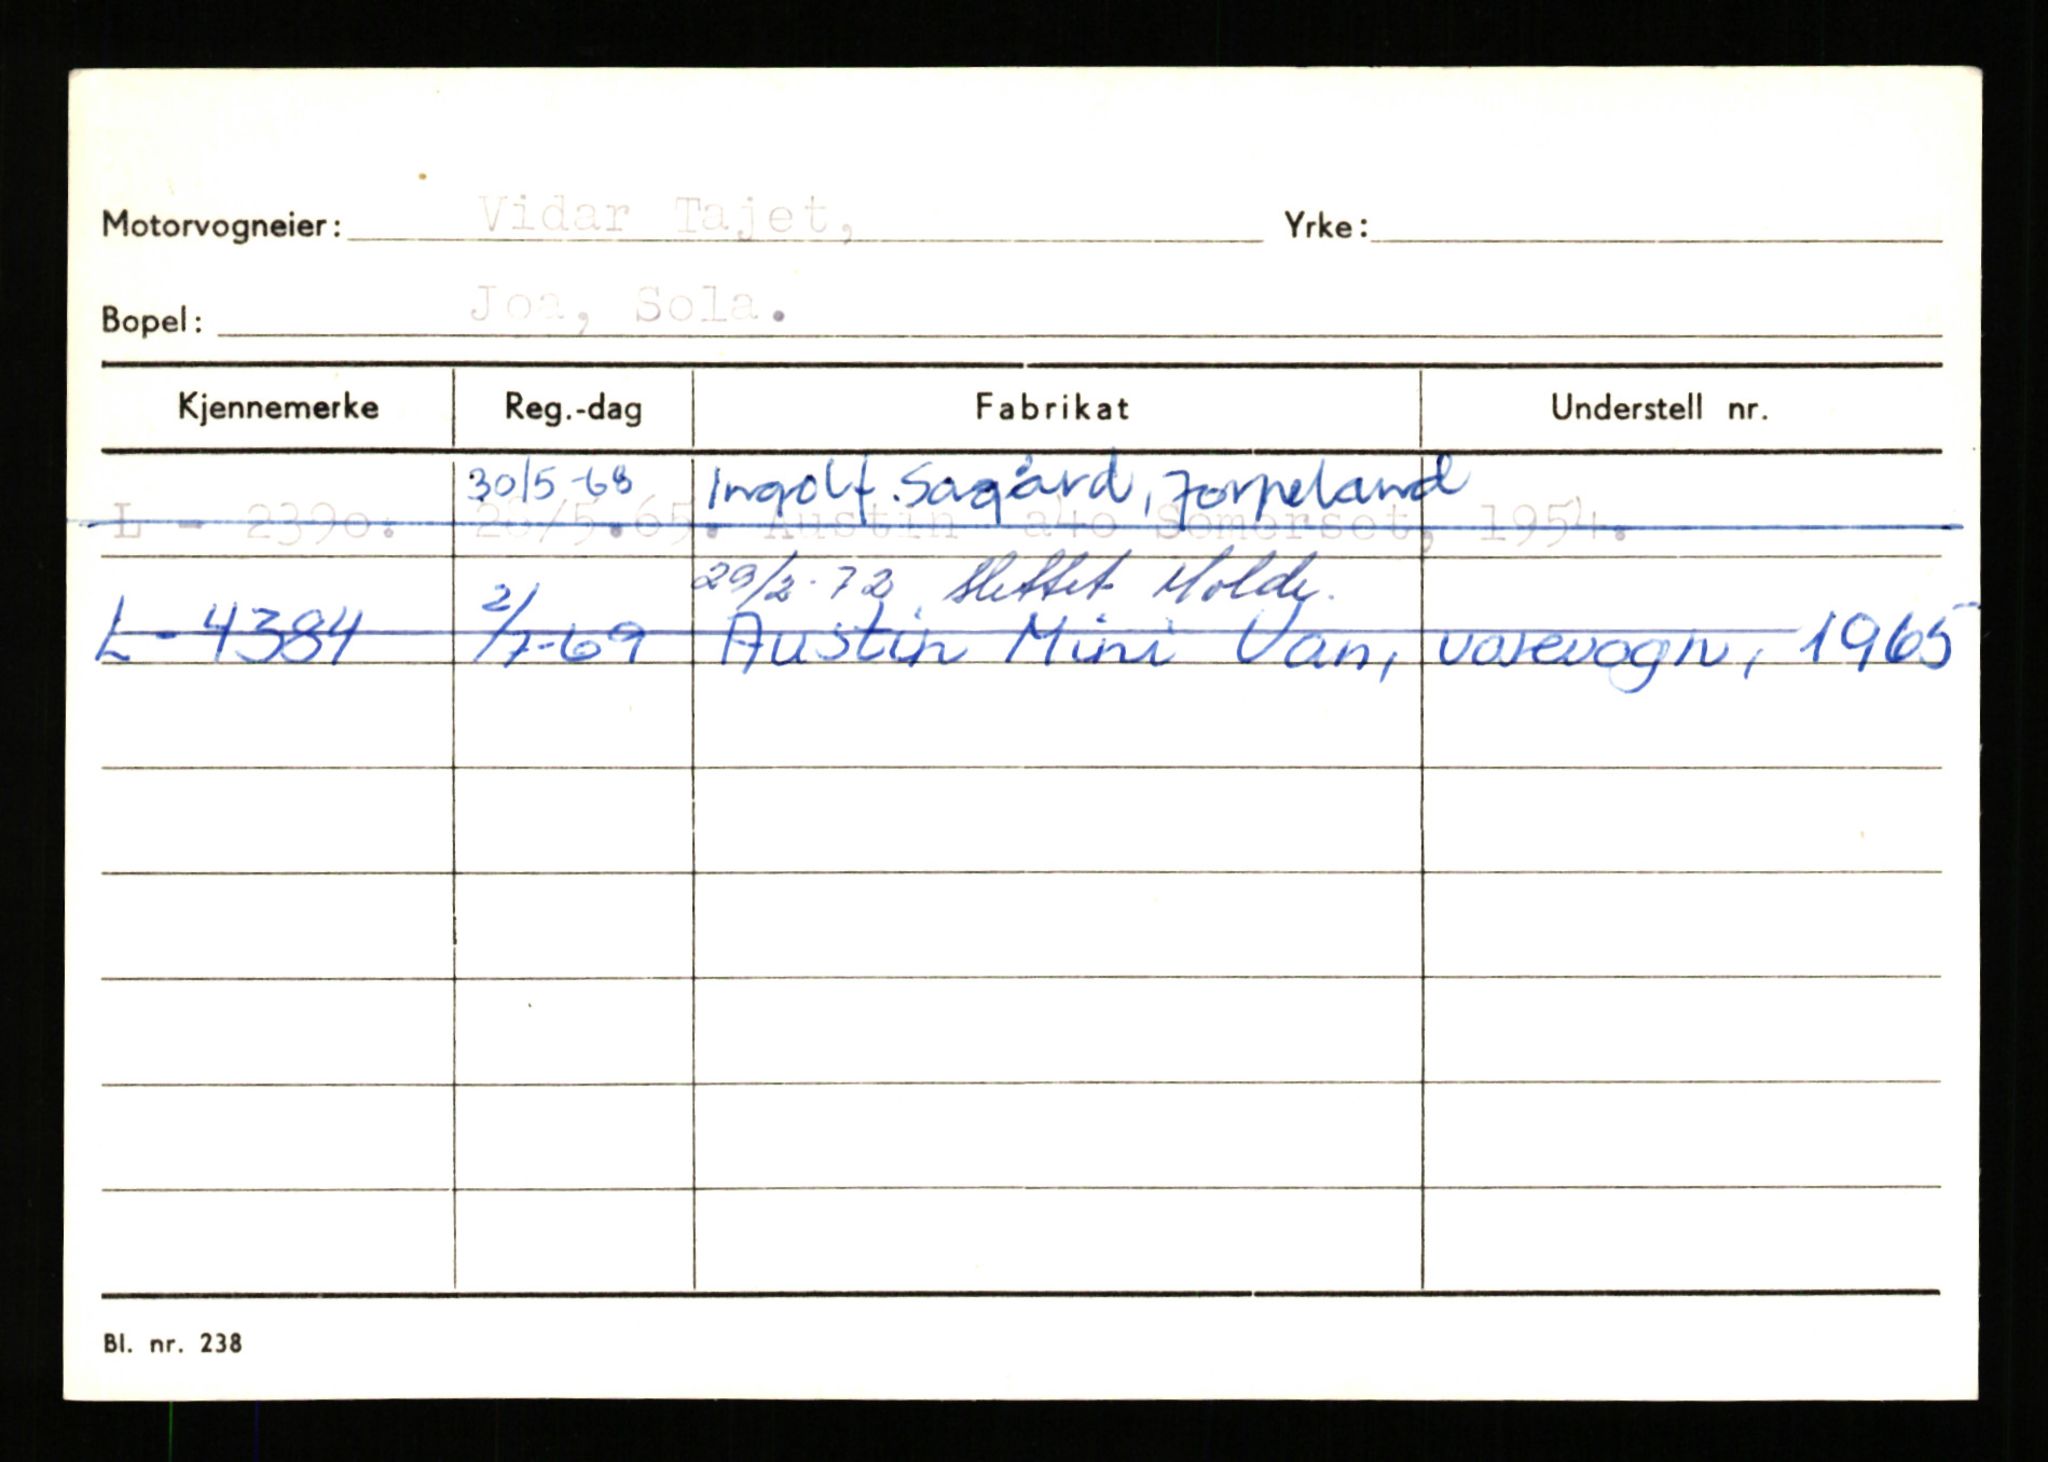 Motorvogneier: Vidar Tajet, Yrke:
Bopel: Joa, Sola.
Kjennemerke Reg.-dag Fabrikat Understell nr.
30/5-68 Ingolf Sagård, Jørpeland
L - 2390. 26/5.65. Austin a40 Somerset, 1954.
29/2-72 slettet Molde.
L-4384 2/7-69 Austin Mini Van, varevogn, 1965
Bl. nr. 238